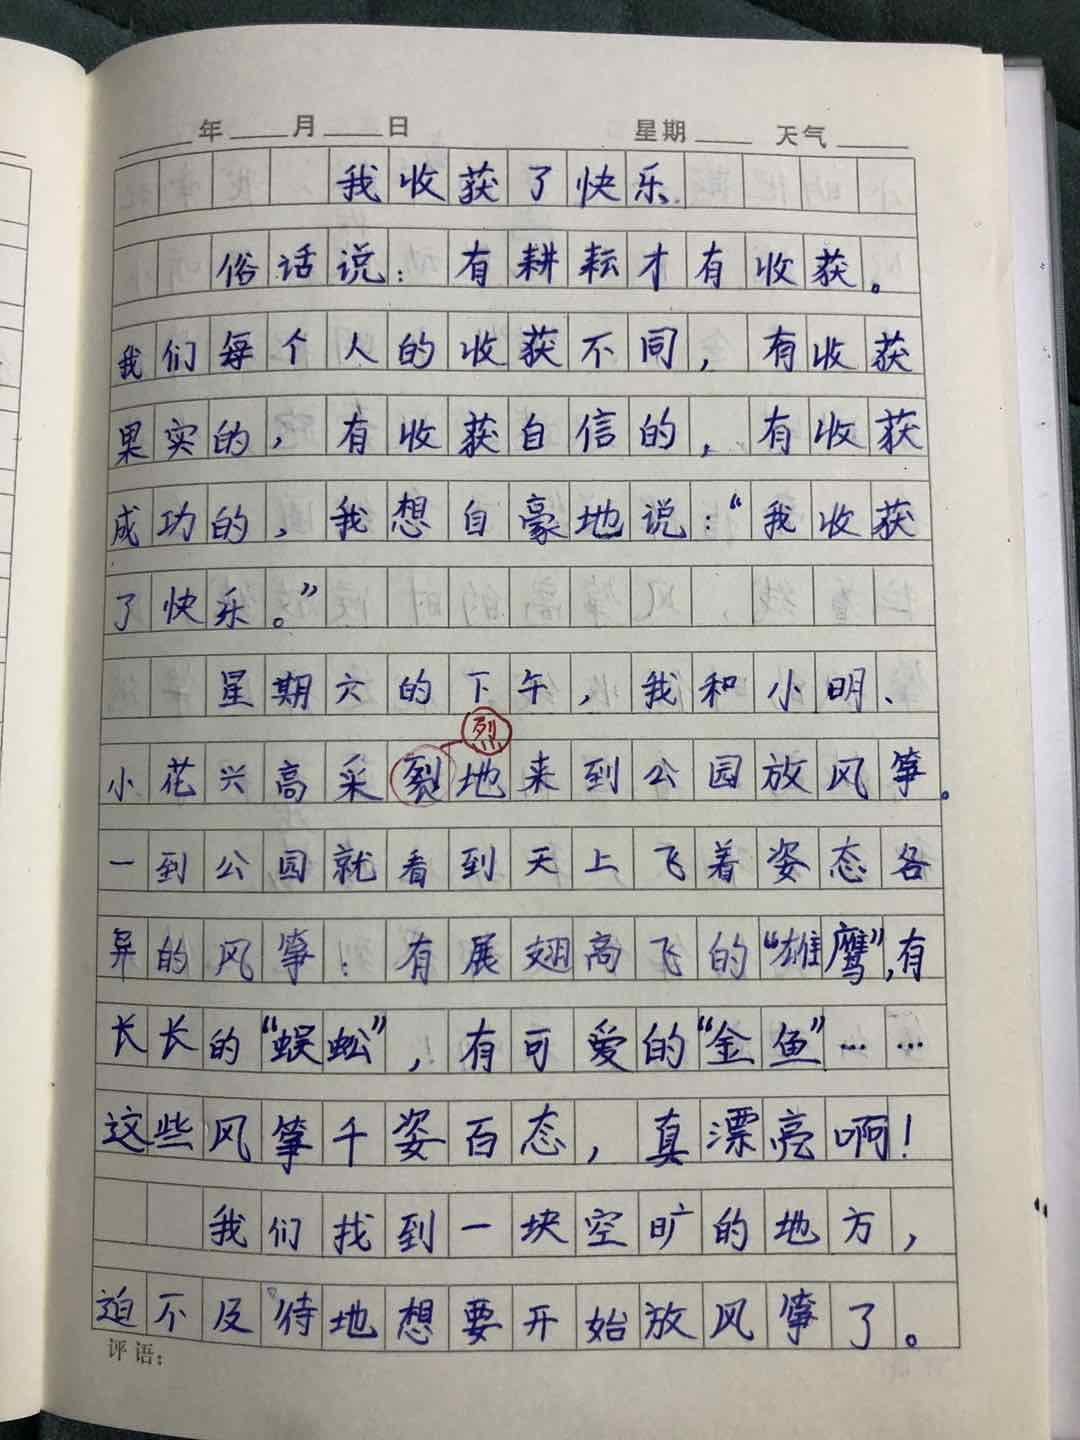 年 月 日 星期 天气
我收获了快乐
俗话说：有耕耘才有收获。
我们每个人的收获不同，有收获
果实的，有收获自信的，有收获
成功的，我想自豪地说：“我收获
了快乐。”
星期六的下午，我和小明、
烈
小花兴高采裂地来到公园放风筝。
一到公园就看到天上飞着姿态各
异的风筝！有展翅高飞的“雄鹰”，有
长长的“蜈蚣”，有可爱的“金鱼”……
这些风筝千姿百态，真漂亮啊！
我们找到一块空旷的地方，
迫不及待地想要开始放风筝了。
评语：